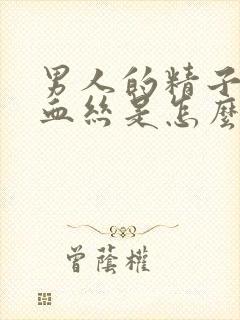 男人的精子
血丝是怎麼
曾蔭權